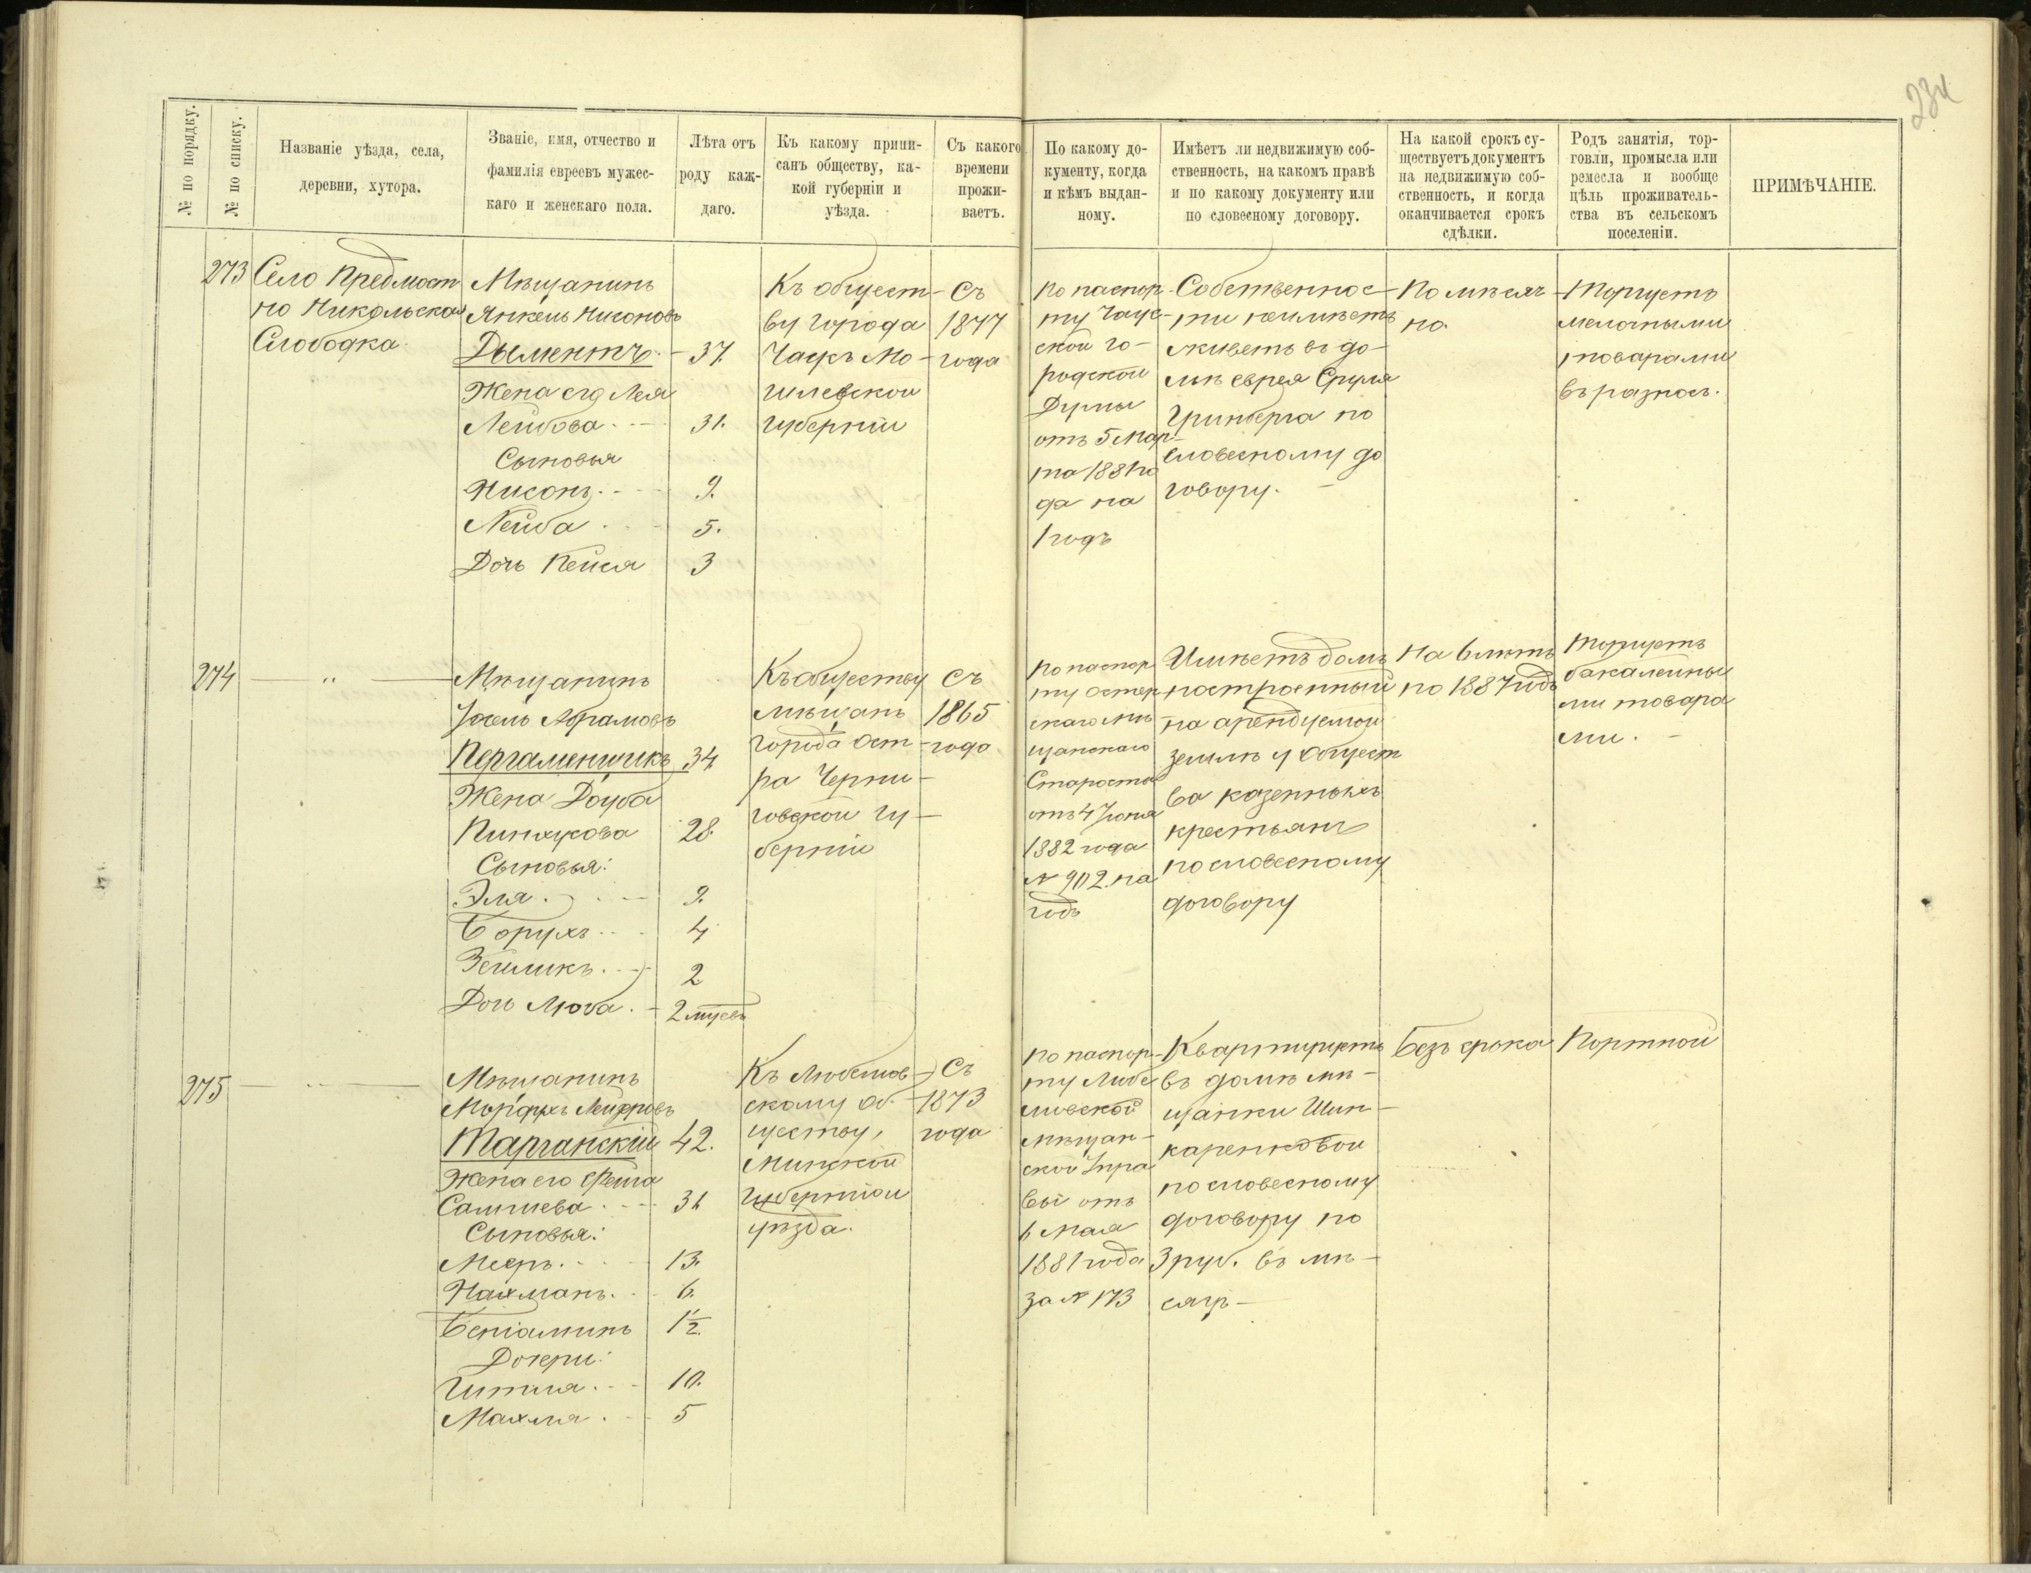 234
№ по порядку.
№ по списку.
Названіе уѣзда, села,
деревни, хутора.
Званіе, имя, отчество и
фамилія евреевъ мужес-
каго и женскаго пола.
Лѣта отъ
роду каж-
даго.
Къ какому припи-
санъ обществу, ка-
кой губерніи и
уѣзда.
Съ какого
времени
прожи-
ваетъ.
По какому до-
кументу, когда
и кѣмъ выдан-
ному.
Имѣетъ ли недвижимую соб-
ственность, на какомъ правѣ
и по какому документу или
по словесному договору.
На какой срокъ су-
ществуетъ документъ
на недвижимую соб-
ственность, и когда
оканчивается срокъ
сдѣлки.
Родъ занятія, тор-
говли, промысла или
ремесла и вообще
цѣль проживатель-
ства въ сельскомъ
поселеніи.
ПРИМѢЧАНІЕ.
273
Село Предмост
но Никольская
Слободка
Мѣщанинъ
Янкель Нисоновъ
Дыментъ - 37.
Жена его Лея
Лейбова - 31.
Сыновья
Нисонъ - 9.
Лейба - 5.
Дочь Пейся 3
Къ общест-
ву города
Чаусъ Мо-
гилевской
губерніи
Съ
1877
года
По паспор-
ту Чаус-
ской го-
родской
Думы
отъ 5 Мар-
та 1881 го
да на
1 годъ
Собственнос-
ти неимѣетъ
живетъ въ до-
мѣ еврея Сруля
Гринберга по
словесному до
говору. -
Помѣсяч-
но.
Торгуетъ
мелочными
товарами
въ разносъ.
274
— " —
Мѣщанинъ
Іосель Абрамовъ
Пергаменщикъ 34
Жена Доуба
Пинхусова 28.
Сыновья:
Эля - 9.
Борухъ - 4
Зейликъ - 2
Дочь Люба. - 2 мѣсяц
Къ обществу
мѣщанъ
города Ост-
ра Черни-
говской гу-
берніи
Съ
1865
года
По паспор
ту Остер
скаго мѣ
щанскаго
Старосты
отъ 4 Іюня
1882 года
№ 902 на
годъ
Имѣетъ домъ
построенный
на арендуемой
землѣ у общест
ва казенныхъ
крестьянъ
по словесному
договору
На 6 лѣтъ
по 1887 годъ
Торгуетъ
бакалейны
ми товара
ми. -
275
— " —
Мѣщанинъ
Мордухъ Лейзеровъ
Тарганскій 42.
Жена его Фейга
31
Сыновья:
Мееръ. - 13.
Нахманъ. - 6.
Беніаминъ 1½.
Дочери:
Гитля. - 10.
Махля. - 5
Къ Любешов-
скому об-
ществу,
Минской
губерніи
уѣзда.
Съ
1873
года
По паспор-
ту Любе
шовской
мѣщан-
ской Упра
вы отъ
6 Мая
1881 года
за № 173
Квартируетъ
въ домѣ мѣ-
щанки Шин-
каренковой
по словесному
договору по
3 руб. въ мѣ-
сяцъ -
Безъ срока
Портной